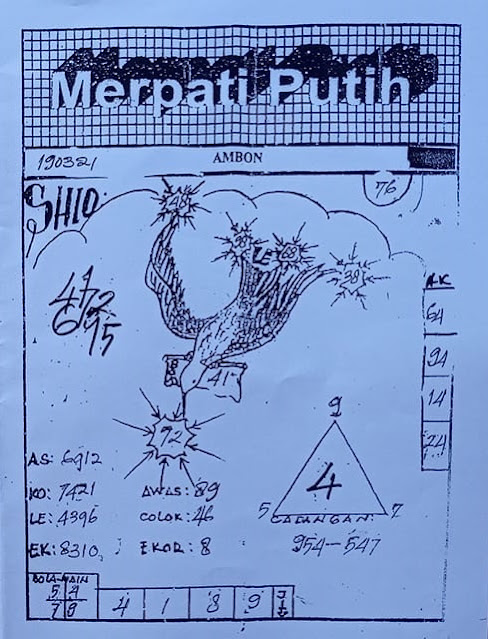 Merpati Putih
190321
AMBON
SHIO:
76
48
38
LE
68
39
472
695
8
41
72
AK
64
94
14
24
AS: 6912
KO: 7421
LE: 4396
EK: 8310
AWAS: 89
COLOK: 46
EKOR: 8
9
4
5
7
CADANGAN:
954-547
BOLA-MAIN
5 4
7 8
4 1 8 9
JITU